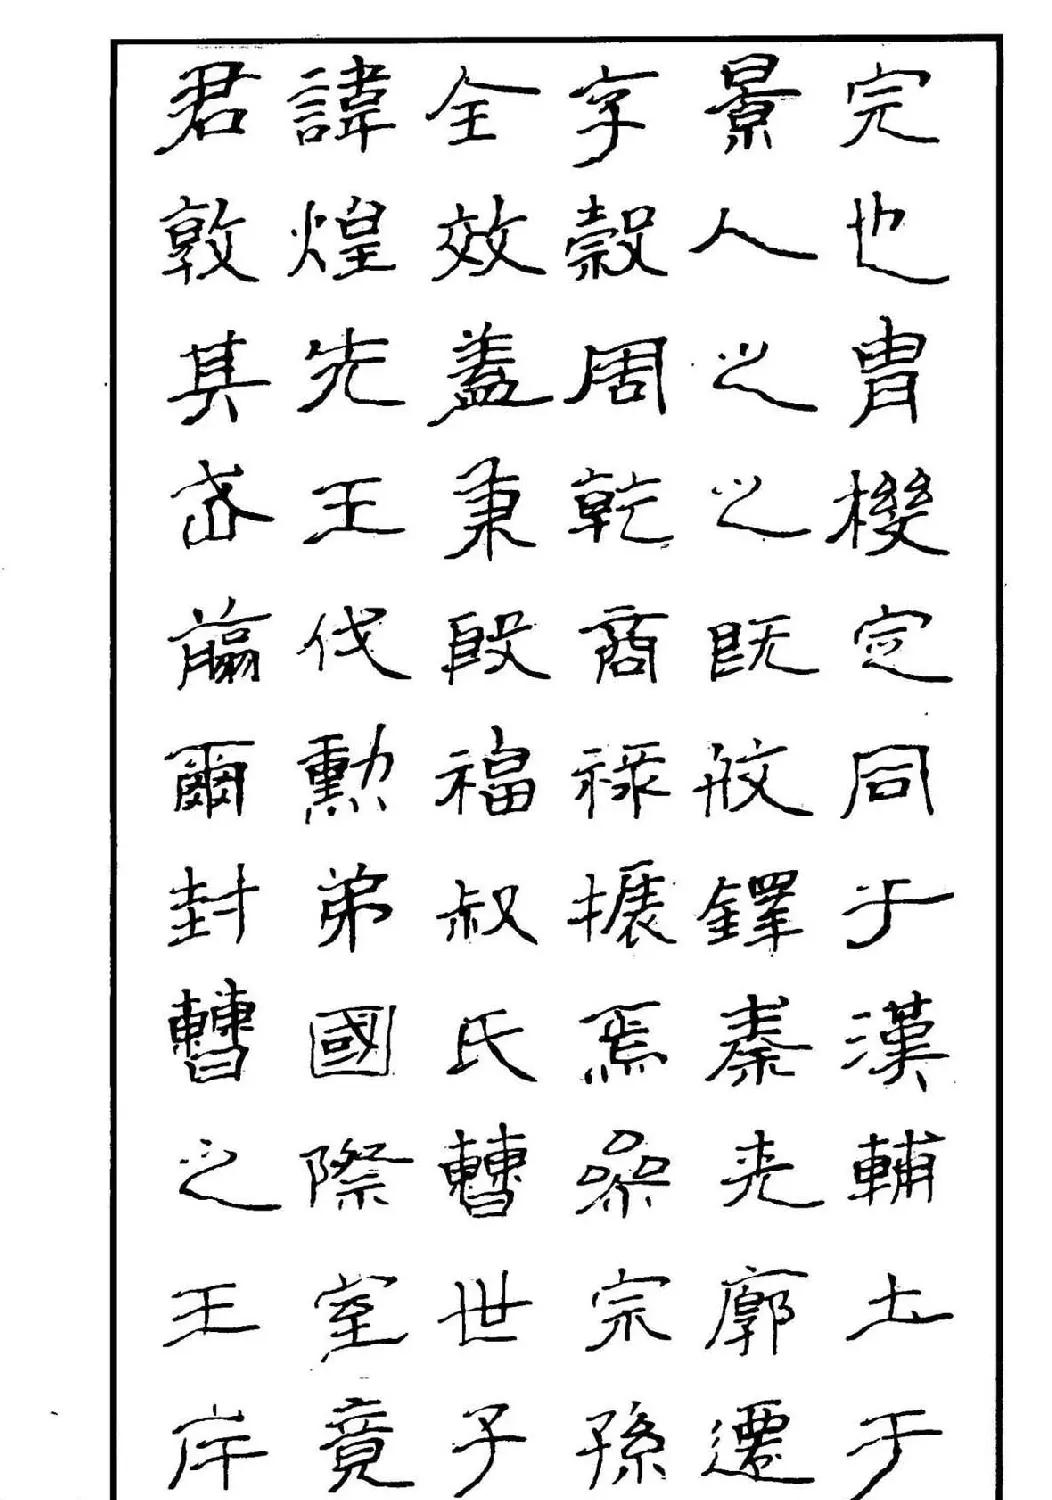 君諱全字景完
敦煌效穀人也
其先蓋周之胄
武王秉乾之機
翦伐殷商既定
爾勳福祿攸同
封弟叔振鐸于
曹國氏焉秦漢
之際曹參夾輔
王室世宗廓土
斥竟子孫遷于